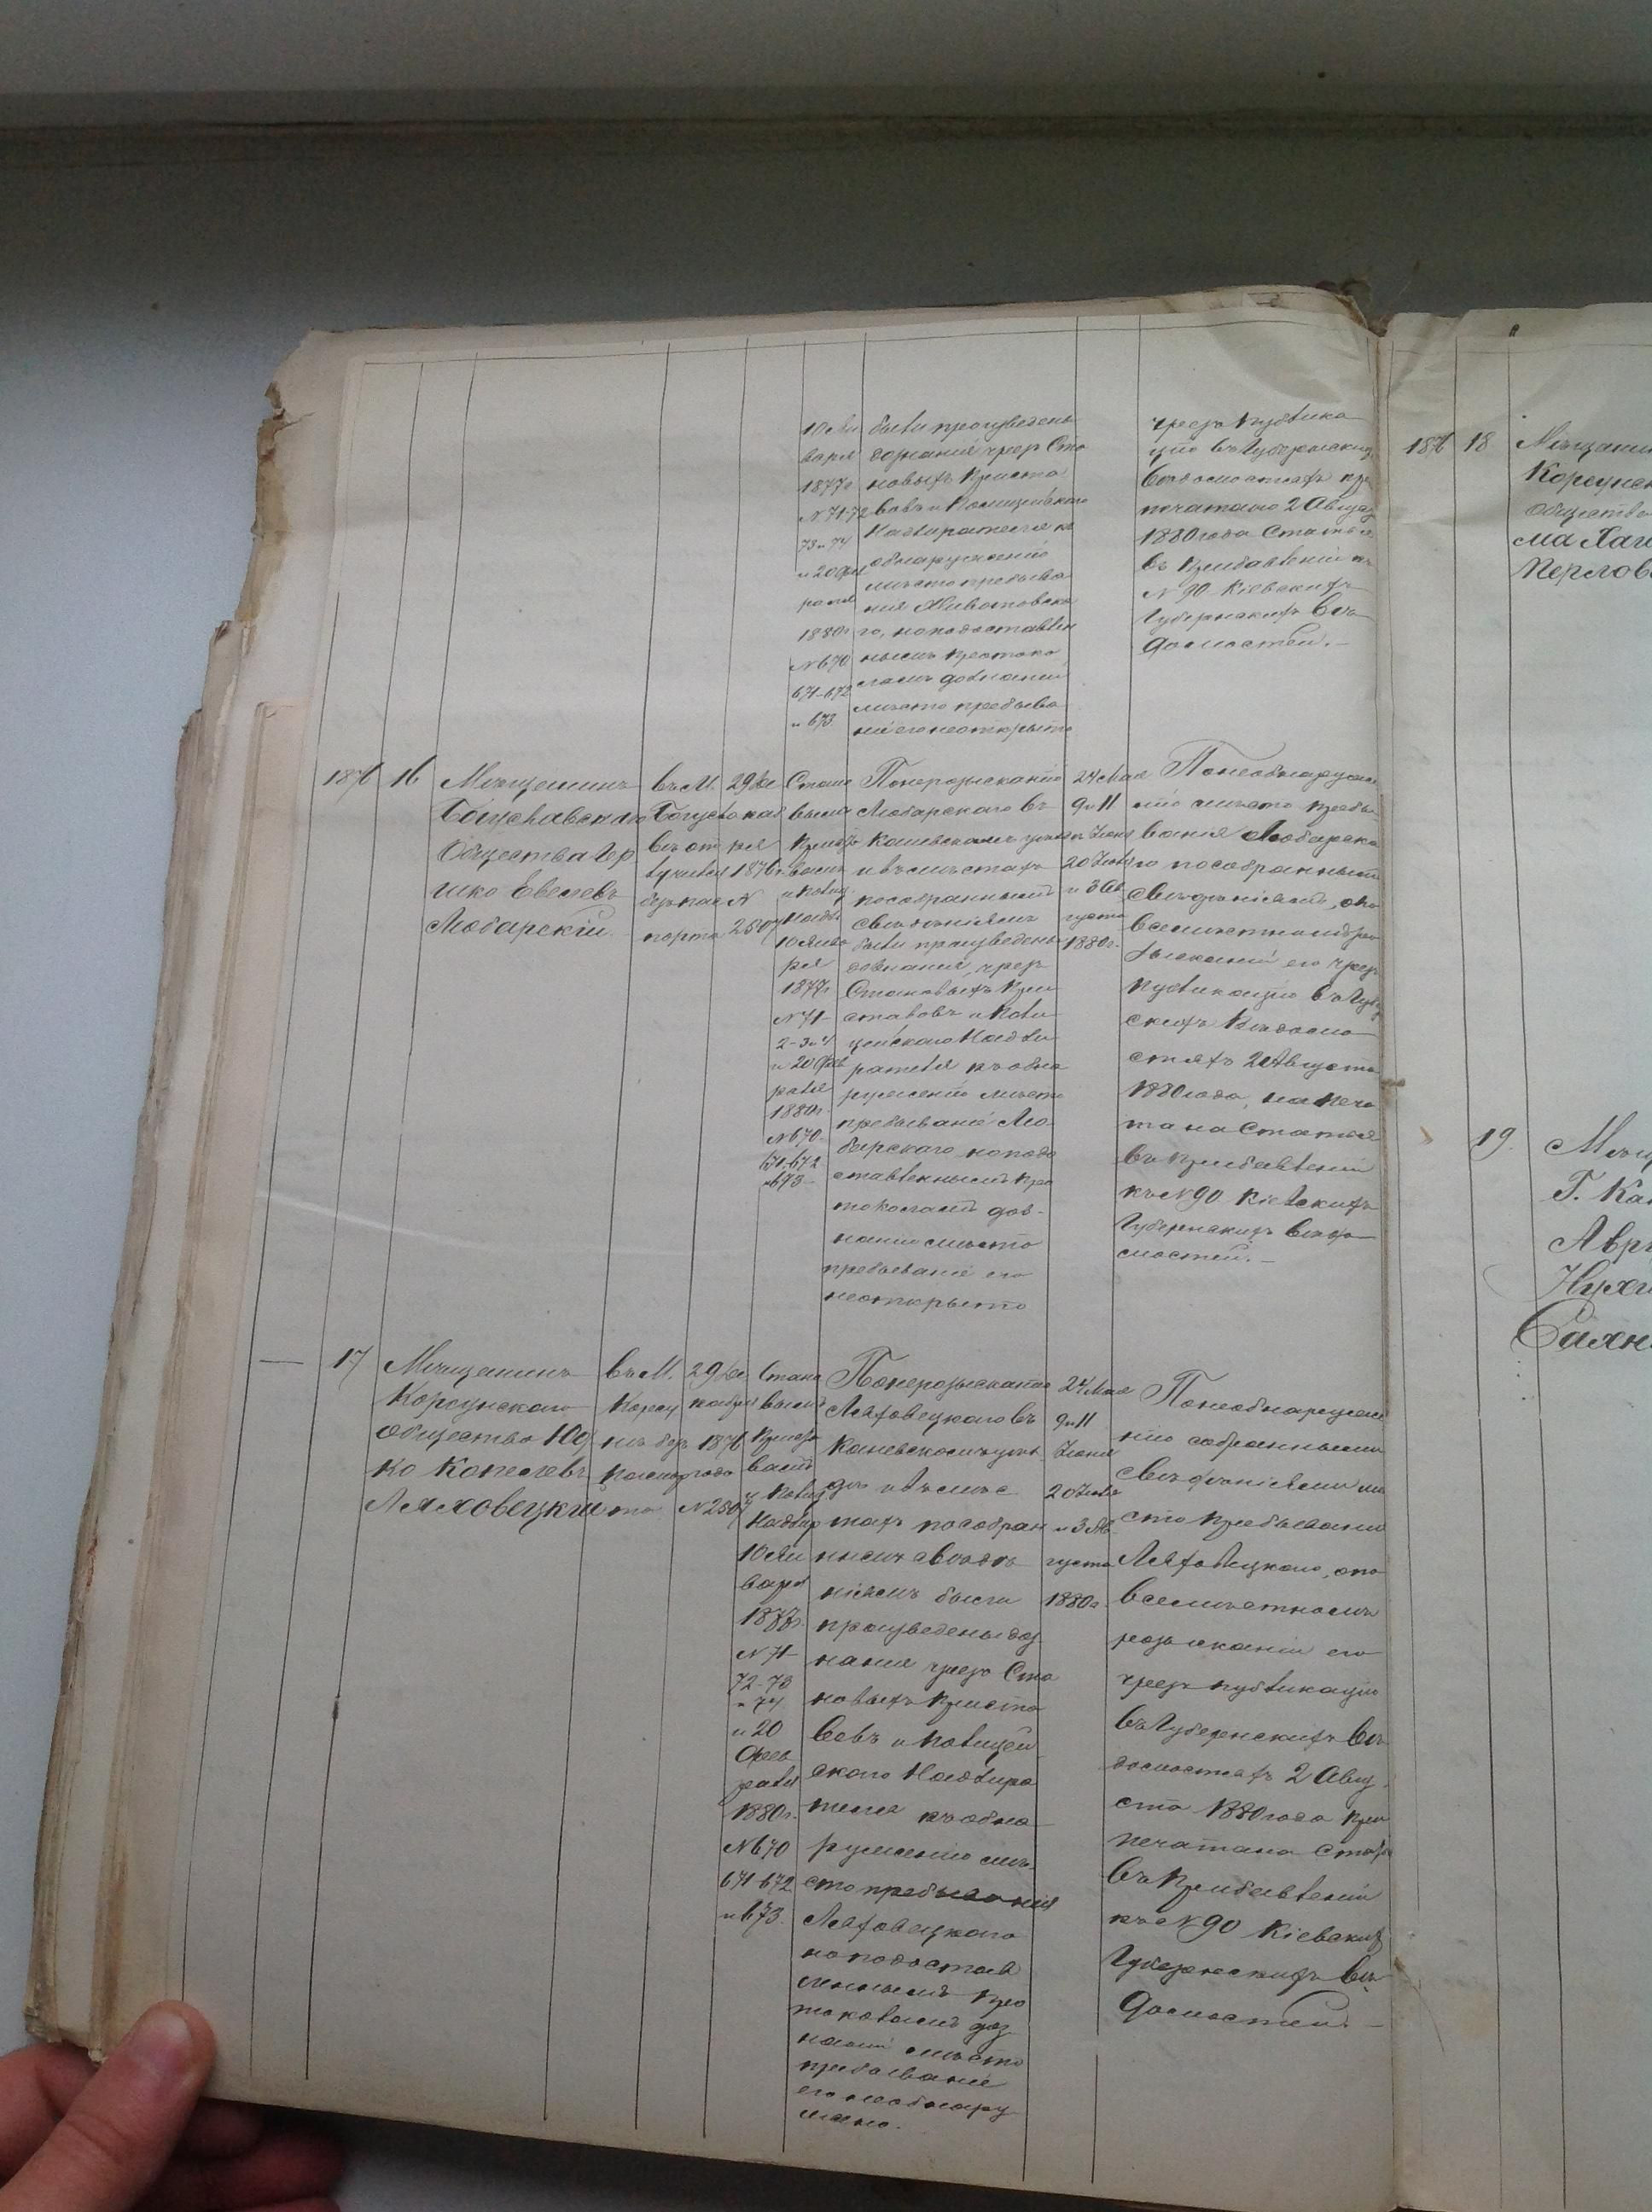 10 Ян
варя
1877 г
№ 71-72
73 и 74
и 20 Фев
раля
1880 г
№ 670
671-672
и 673
были произведены
дознанія чрез Ста
новыхъ Приста
вовъ и Полицейска
Надзирателя къ
обнаруженію
мѣста пребыва
нія
го, но по доставлен
нымъ протоко
ламъ дознаній
мѣсто пребыва
ніе его не открыто
чрезъ публика
цію въ Губернскихъ
Вѣдомостяхъ
печатано 2 Августа
1880 года Статья
въ прибавленіи къ
№ 90 Кіевскихъ
Губернскихъ Вѣ
домостей.-
1876
16
Мѣщанинъ
Богуславскаго
Общества Гер
шко Евелевъ
Любарскій
въ М.
Богусла
вѣ от
лучился
безъ пас
порта
29 Де
каб
ря
1876 г
№
2507
Стано
вымъ
Приста
вамъ
и Полиц.
Надз.
10 Янва
ря
1877 г
№ 71-
2-3 и 4
и 20 Фев
раля
1880 г.
№ 670
671-672
и 673-
По неразысканію
Любарскаго въ
Каневскомъ уѣздѣ
и въ мѣстахъ
по собраннымъ
свѣдѣніямъ
были произведены
дознанія, чрезъ
Становыхъ При
ставовъ и Поли
цейскаго Надзи
рателя къ обна
руженію мѣста
пребыванія Лю
барскаго, но по до
ставленнымъ про
токоламъ доз-
нанія мѣсто
пребываніе его
не открыто
24 Мая
9 и 11
Іюня
20 Іюля
и 3 Ав
густа
1880 г.
По необнаруже
нію мѣста пребы-
ванія Любарска
го по собраннымъ
свѣдѣніямъ, о по
всемѣстномъ ро
зысканіи его чрезъ
публикацію въ Губерн
скихъ Вѣдомо
стяхъ 2 Августа
1880 года, напеча
тана Статья
въ прибавленіи
къ № 90 Кіевскихъ
Губернскихъ Вѣдо
мостей.-
—
17
Мѣщанинъ
Корсунскаго
общества Юд
ко Копелевъ
Ляховецкій
въ М.
Корсу
нѣ безъ
паспор
та
29 Де
кабря
1876
года
№ 2507
Стано
вымъ
Приста
вамъ
и Полиц
Надзир
10 Ян
варя
1877 г.
№ 71-
72-73
и 74
и 20
Фев
раля
1880 г.
№ 670
671-672
и 673.
По неразысканію
Ляховецкаго въ
Каневскомъ уѣз
дѣ и въ мѣс
тахъ по собран
нымъ свѣдѣ
ніямъ были
произведены доз
нанія чрезъ Ста
новыхъ Приста
вовъ и Полицей
скаго Надзира
теля къ обна
руженію мѣ-
ста пребыванія
Ляховецкаго
но по достав
леннымъ про
токоламъ доз
наній мѣсто
пребываніе
его необнару
жено.
24 Мая
9 и 11
Іюня
20 Іюля
и 3 Ав
густа
1880 г.
По необнаруже
нію собранными
свѣдѣніями мѣ
сто пребыванія
Ляховецкаго, о по
всемѣстномъ
розысканіи его
чрезъ публикацію
въ Губернскихъ Вѣ
домостяхъ 2 Авгу
ста 1880 года при
печатана Статья
въ Прибавленіи
къ № 90 Кіевскихъ
Губернскихъ Вѣ-
домостей.-
1876
18
Мѣщанин
Корсунск
общества
Перлов
19
Мѣщ
Г. Кан